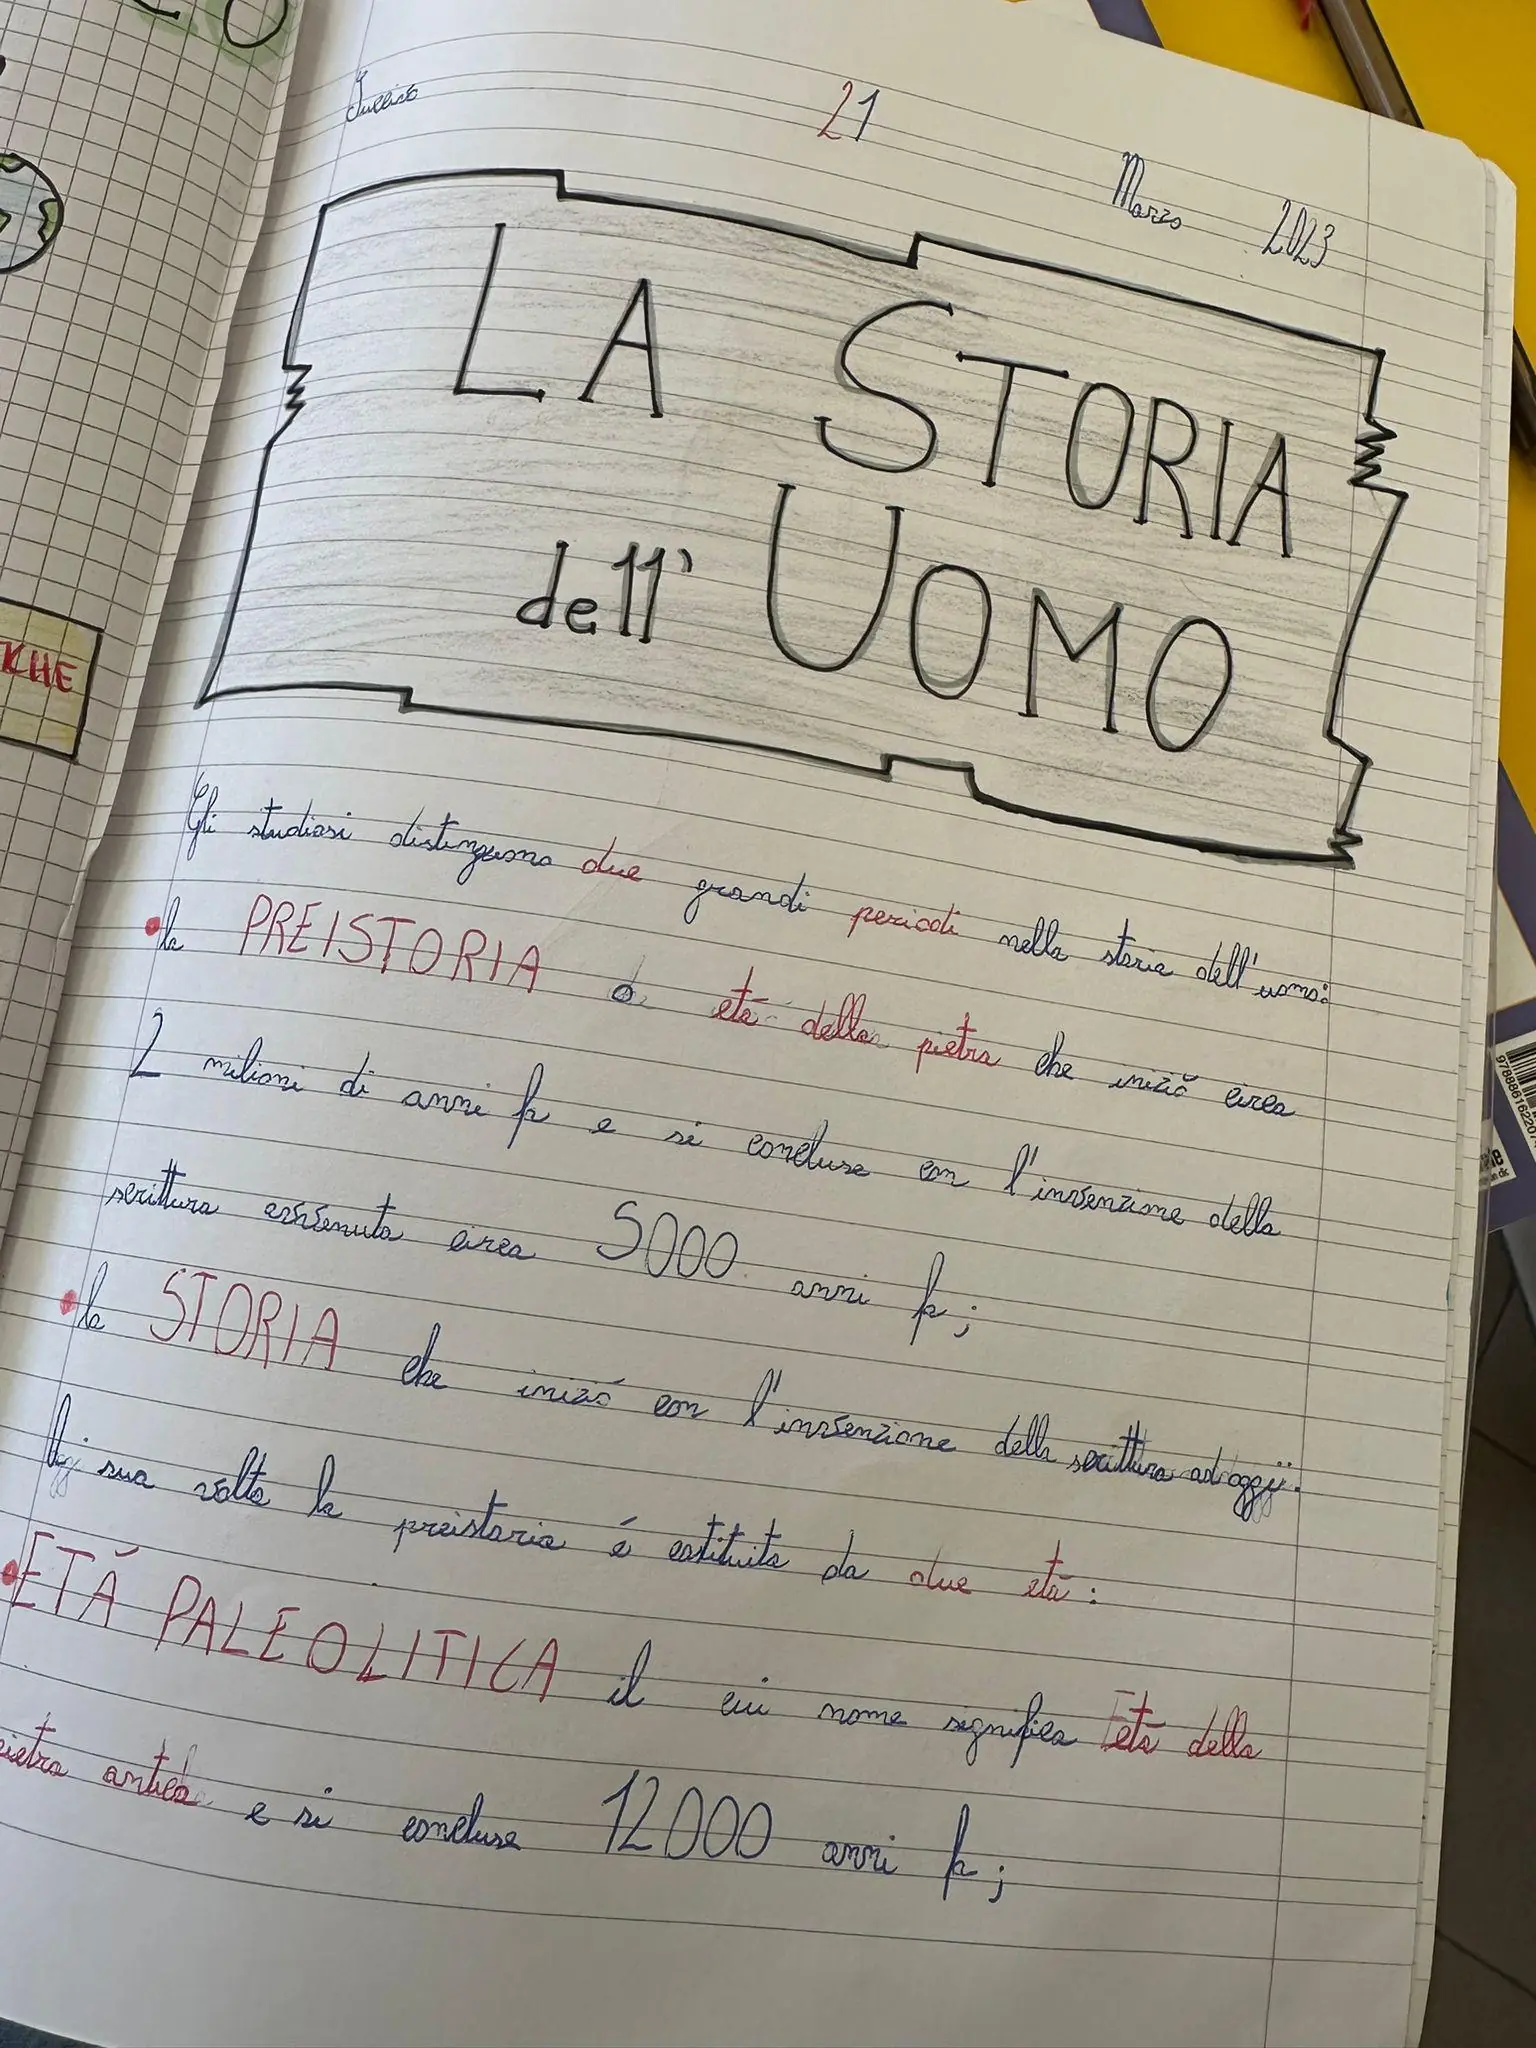 21 Marzo 2023
LA STORIA
dell' UOMO
Gli studiosi distinguono due grandi periodi nella storia dell'uomo:
la PREISTORIA o età della pietra che iniziò circa
2 milioni di anni fa e si concluse con l'invenzione della
scrittura avvenuta circa 5000 anni fa;
la STORIA che iniziò con l'invenzione della scrittura ad oggi.
sua volta la preistoria é costituita da due età:
ETÁ PALEOLITICA il cui nome significa età della
pietra antica e si concluse 12000 anni fa;
KHE